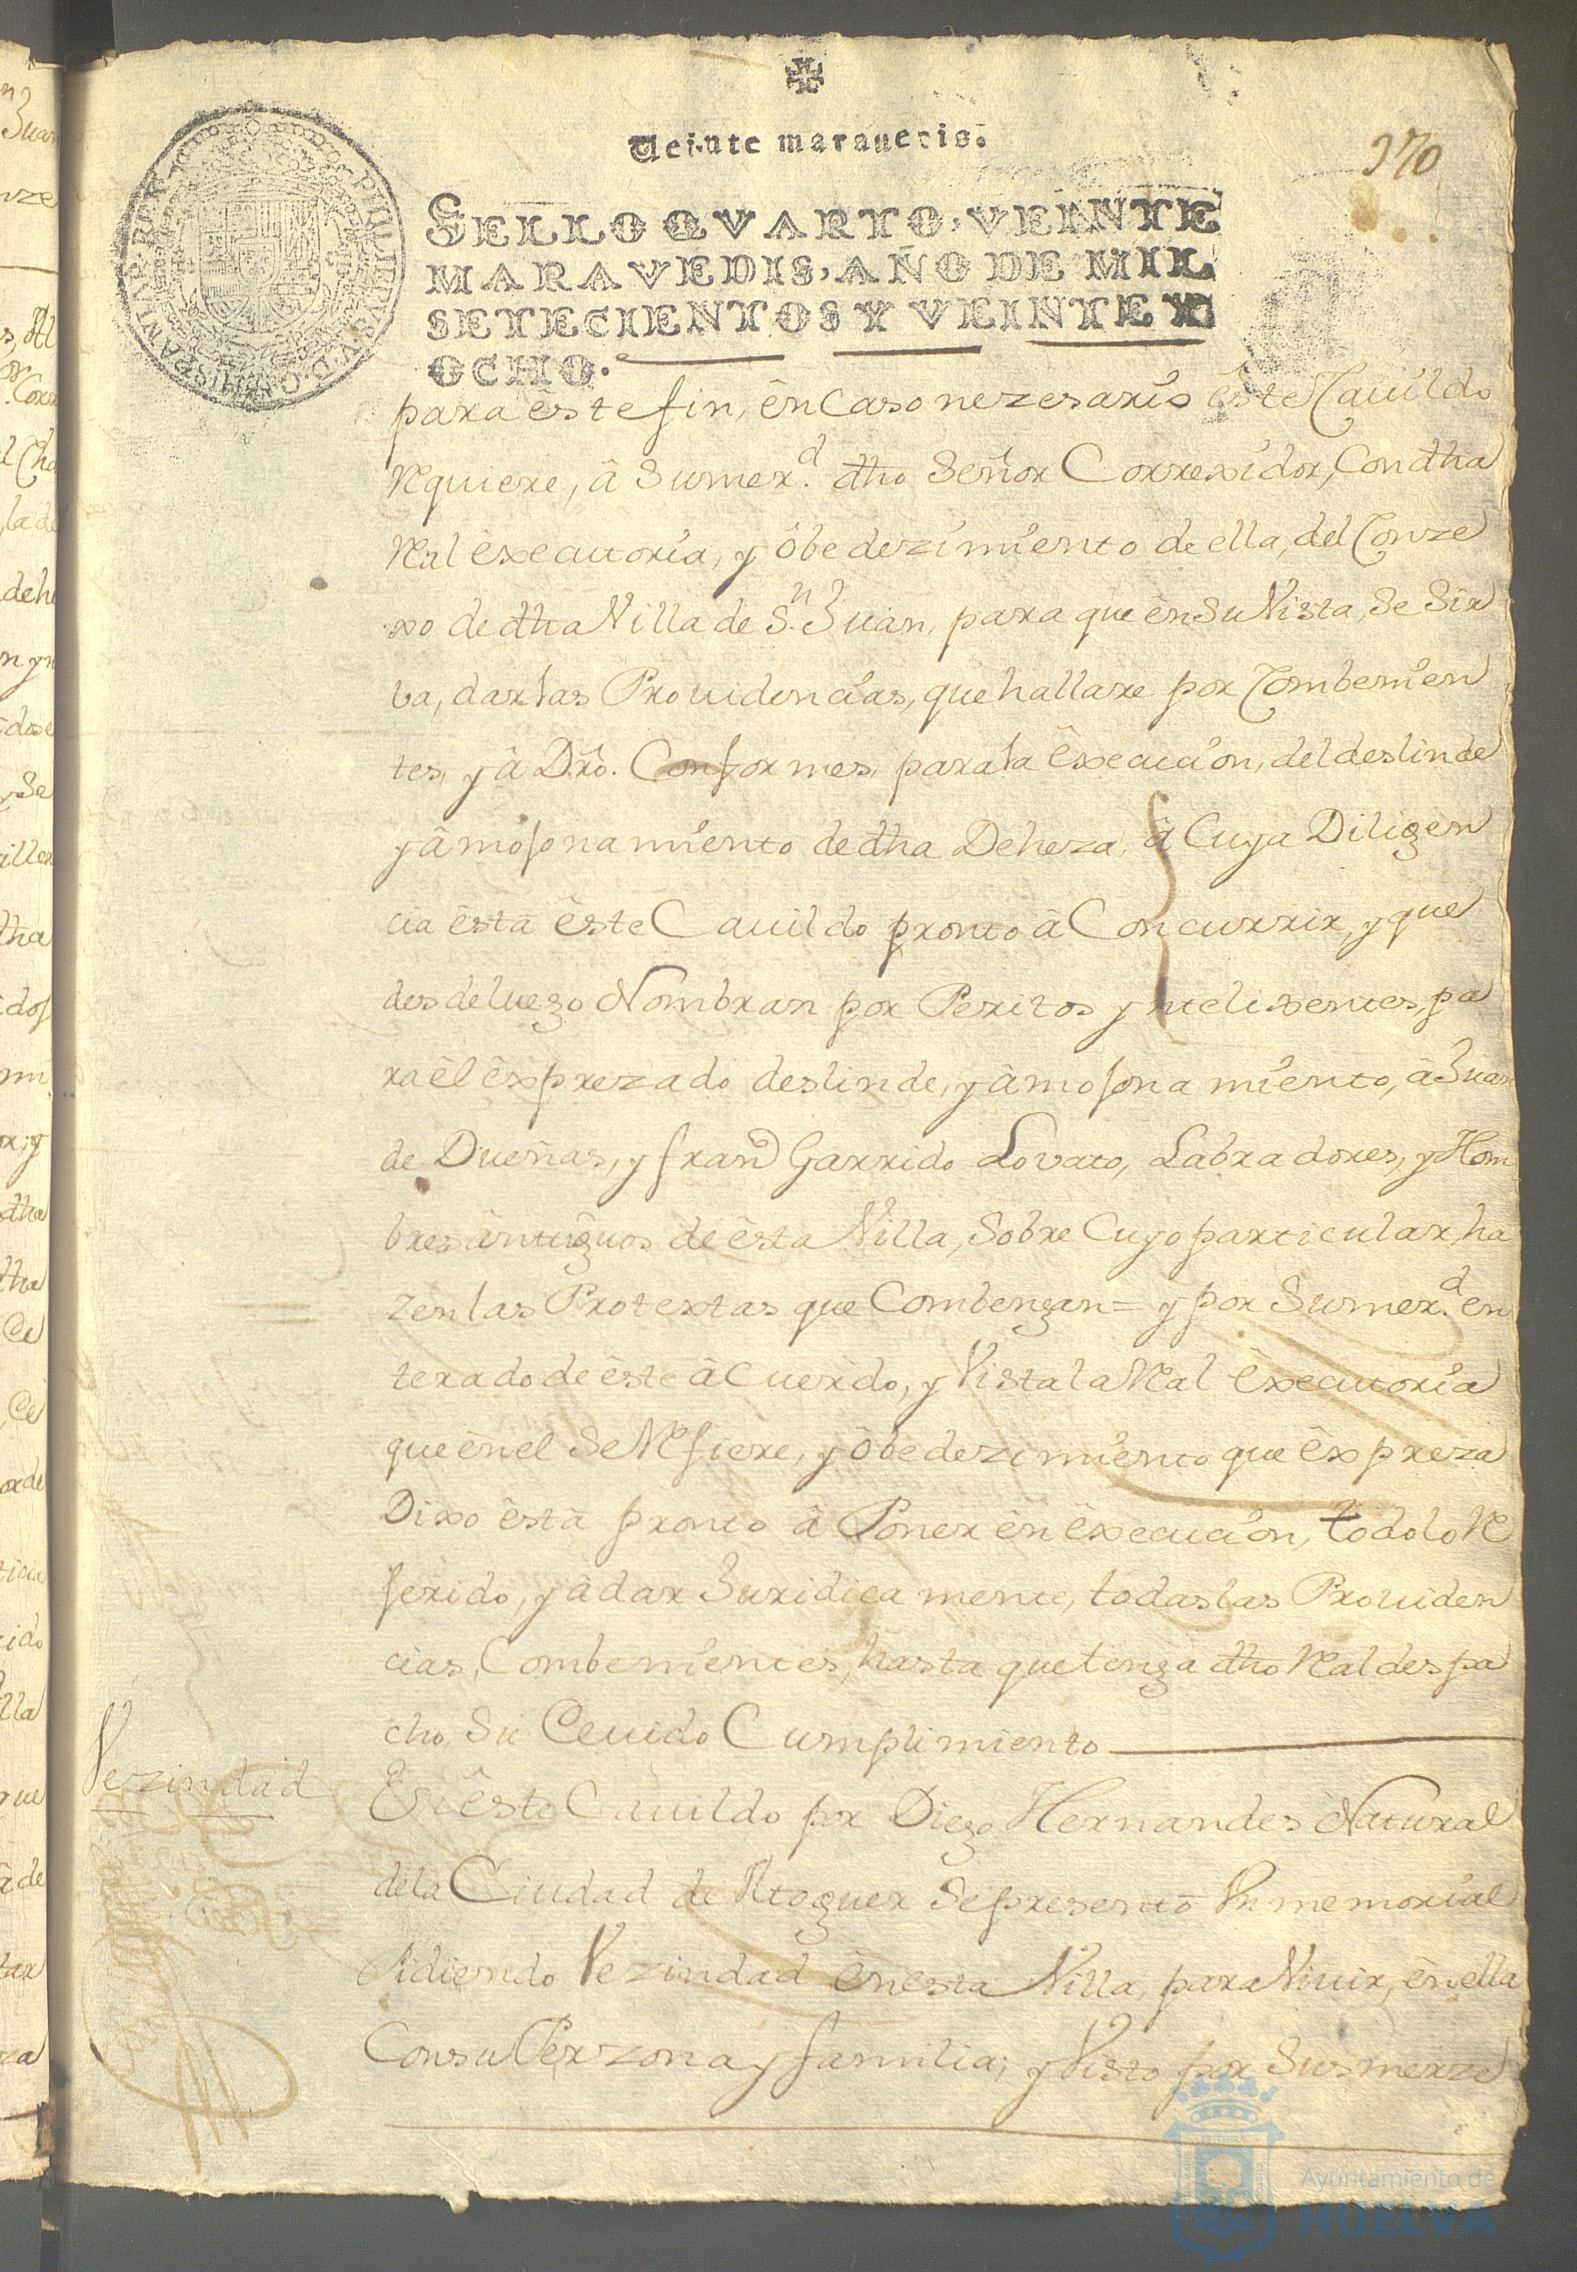 Veinte maravedis.
370
SELLO QVARTO, VEINTE
MARAVEDIS, AÑO DE MIL
SETECIENTOS Y VEINTE Y
OCHO.
para èste fin, èn Caso nezesario èste Cauildo
Requiere, â Sumerd. dho Señor Correxidor, Con dha
Real èxecutoria, y ôbedezimiento de ella, del Conze
xo de dha Villa de Sn. Juan, para que èn Su Vista, Se Sir
va, dar las Prouidencias, que hallare por Combenien
tes, y â Dro. Conformes, para la Êxecucion, del deslinde
y âmojonamiento de dha Deheza, â Cuya Diligen
cia èsta èste Cauildo pronto â Concurrir, y que
desde luego Nombran por Peritos ynteligentes, pa
ra èl èxprezado deslinde, y âmojonamiento, â Juan
de Dueñas, y Franco Garrido Lovato, Labradores, y Hom
bres ântiguos de èsta Villa, Sobre Cuyo particular, ha
zen las Protextas que Combengan = y por Sumerd. en
terado de èste âCuerdo, y Vista la Real Èxecutoria
que èn el Se Refiere, y ôbedezimiento que êxpreza
Dixo èstà pronto â Poner èn èxecucion, todo lo Re
ferido, y â dar Juridica mente, todas las Prouiden
cias, Combenientes, hasta que tenga dho Real despa
cho Su Deuido Cumplimiento
Vezindad
En èste Cauildo por Diego Hernandes Natural
de la Ciudad de Moguer Se presentò Un memorial
Pidiendo Vezindad èn esta Villa, para Viuir, èn ella
Con su Perzona y familia; y Visto por Sus merze
Ayuntamiento de
HUELVA